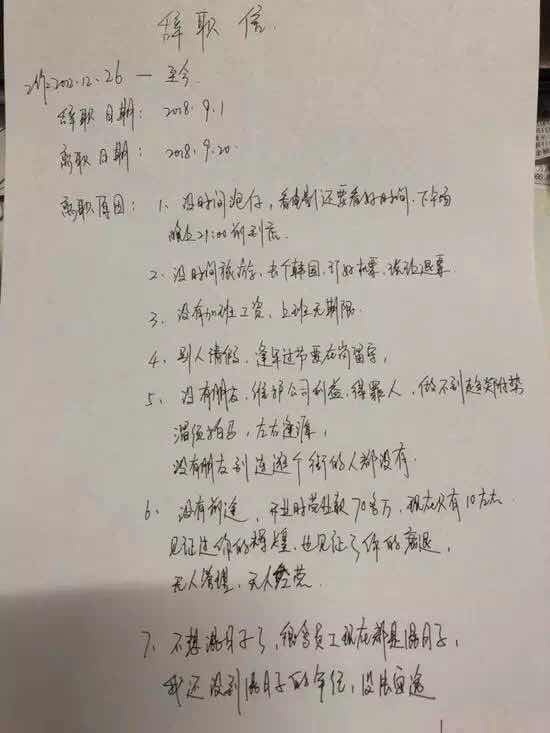 辞职信
工作2012.12.26 — 至今
辞职日期: 2018.9.1
离职日期: 2018.9.20.
离职原因: 1、没时间泡仔,看电影还要看好时间.下午场
晚上21:00前到底.
2、没时间旅游,去个韩国,订好机票,被迫退票
3、没有加班工资、上班无期限.
4、别人请假,逢年过节要在岗留守,
5、没有朋友,维护公司利益,得罪人,做不到趋炎附势
溜须拍马,左右逢源,
没有朋友到连逛个街的人都没有.
6、没有前途,开业时营业额70多万,现在只有10左右
见证过你的辉煌,也见证了你的衰退,
无人管理,无人经营.
7、不想混日子了,很多员工现在都是混日子,
我还没到混日子的年纪,